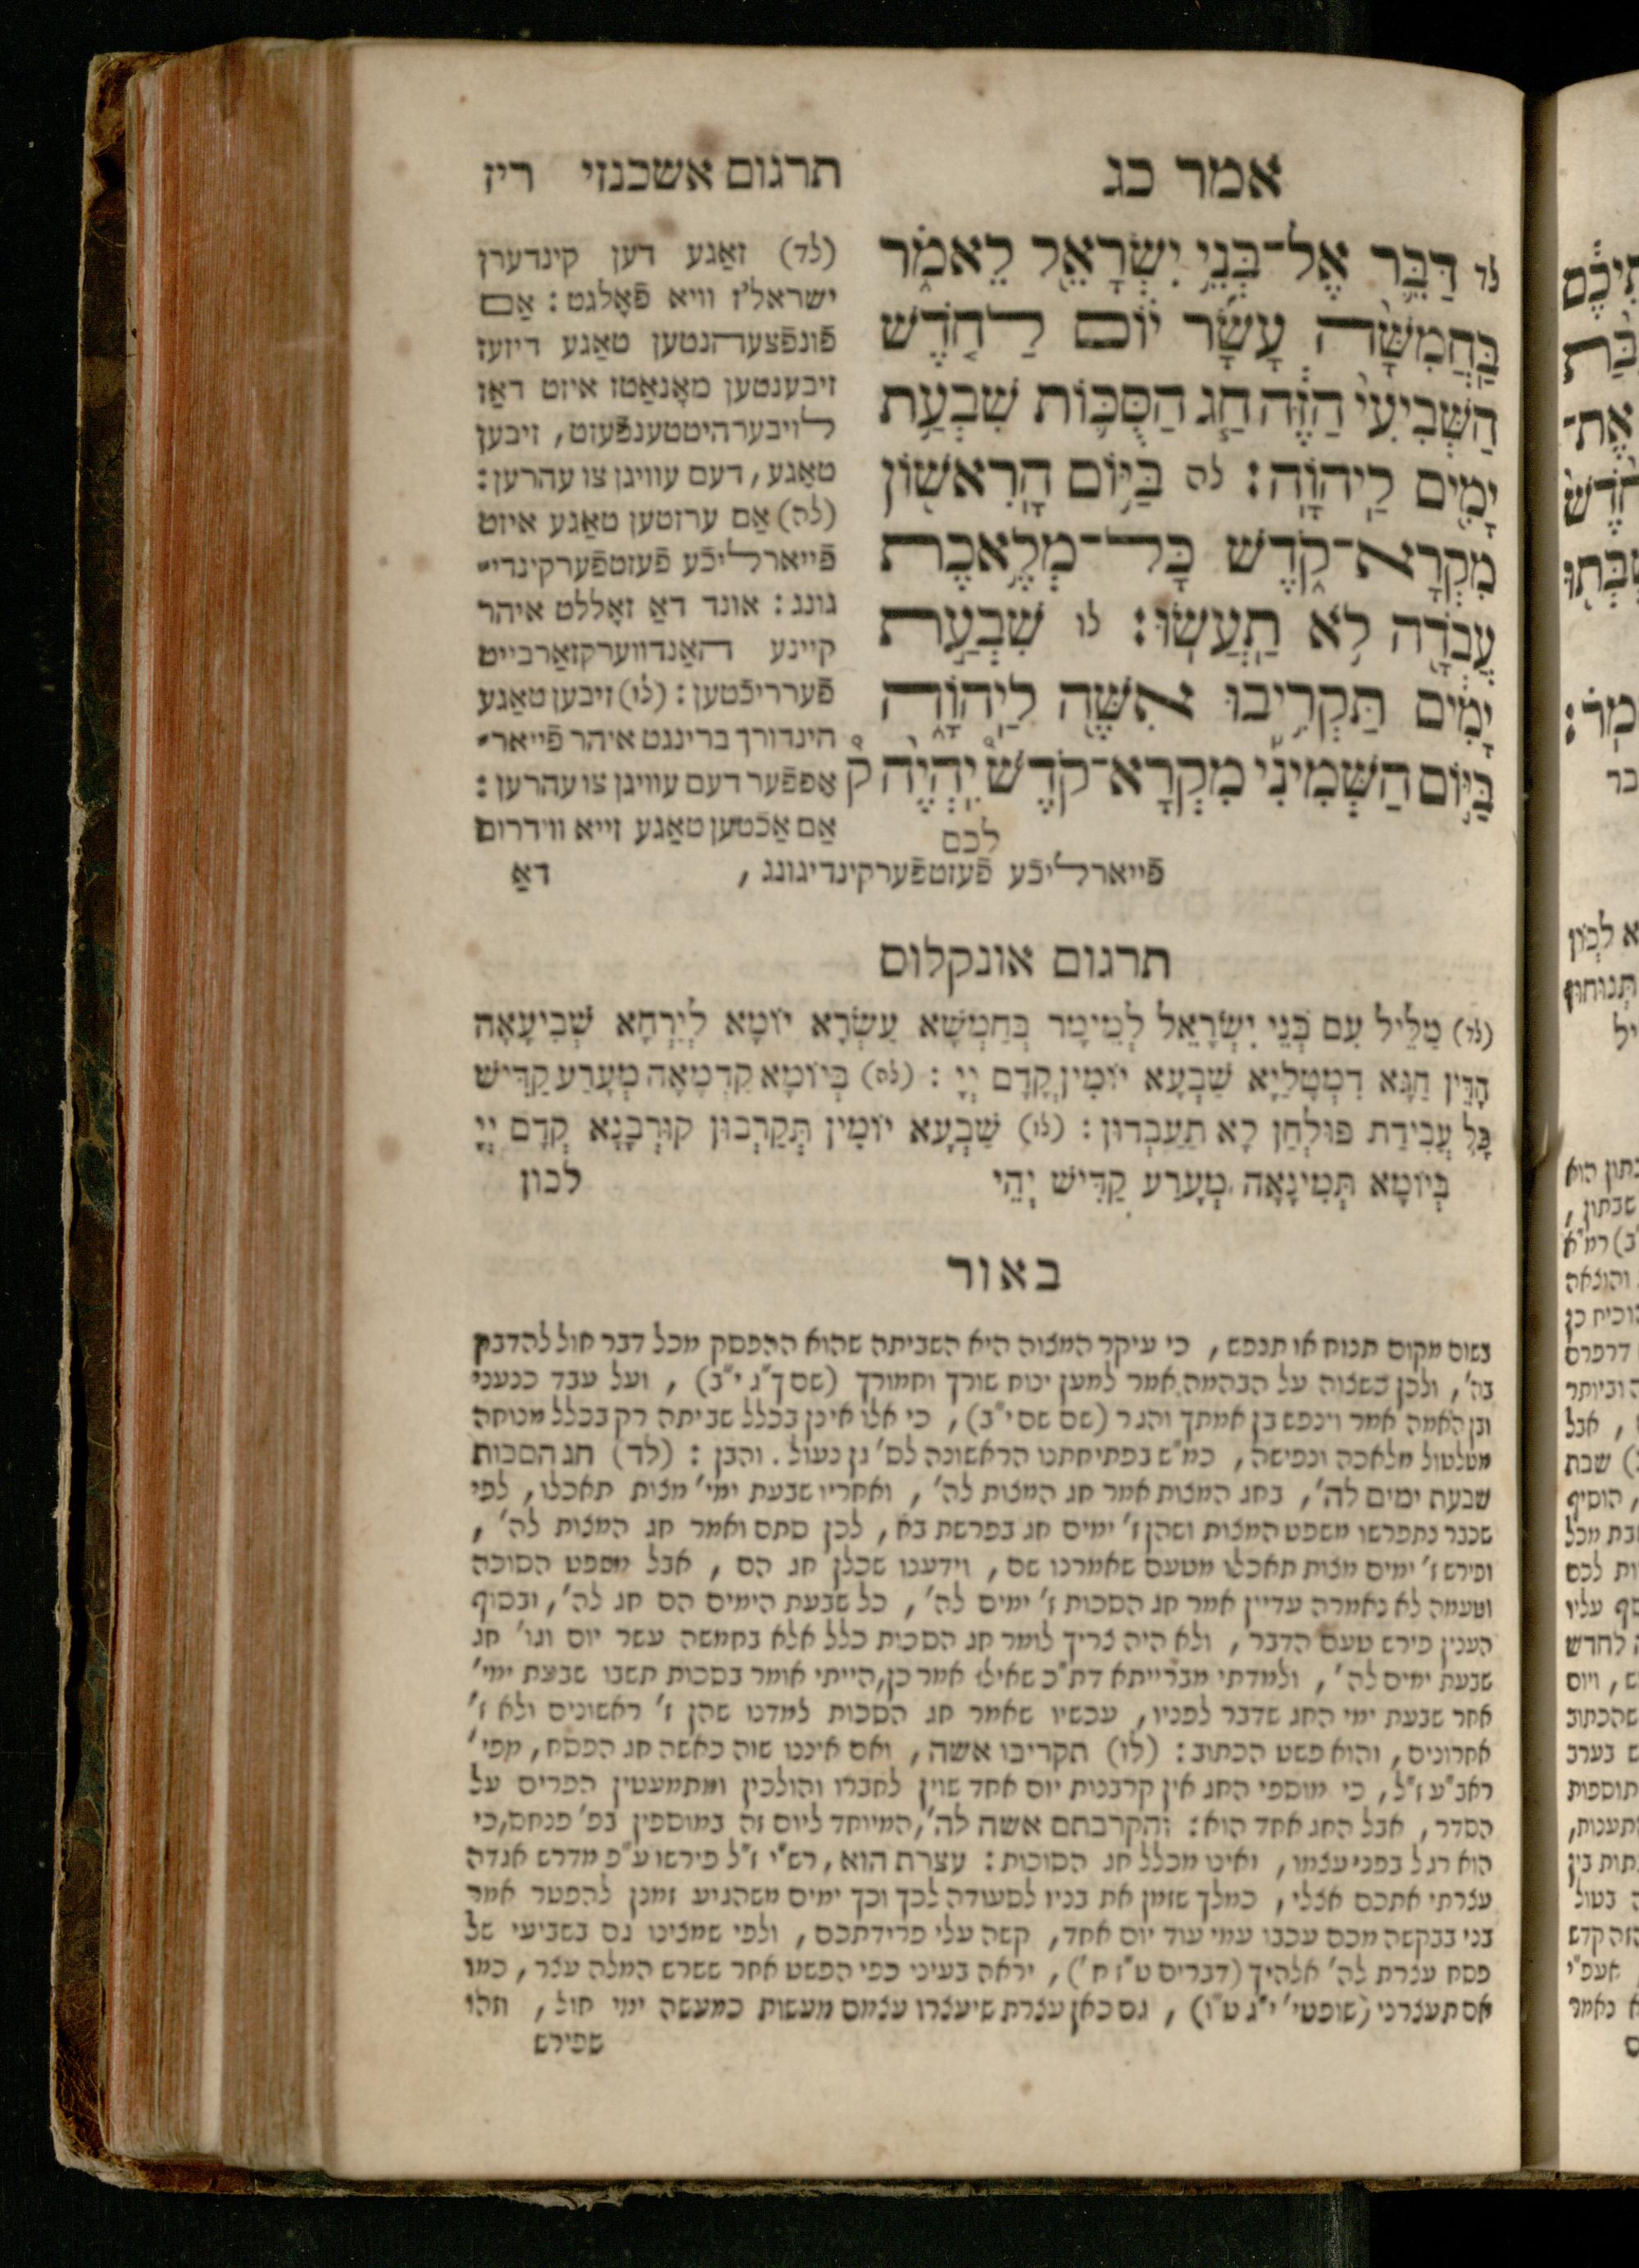 אמר כג
תרגום אשכנזי ריז
לד דַּבֵּר אֶל־בְּנֵי יִשְׂרָאֵל לֵאמֹר
בַּחֲמִשָּׁה עָשָׂר יוֹם לַחֹדֶשׁ
הַשְּׁבִיעִי הַזֶּה חַג הַסֻּכּוֹת שִׁבְעַת
יָמִים לַיהוָֹה׃ לה בַּיּוֹם הָרִאשׁוֹן
מִקְרָא־קֹדֶשׁ כָּל־מְלֶאכֶת
עֲבֹדָה לֹא תַעֲשׂוּ׃ לו שִׁבְעַת
יָמִים תַּקְרִיבוּ אִשֶּׁה לַיהוָֹה
בַּיּוֹם הַשְּׁמִינִי מִקְרָא־קֹדֶשׁ יִהְיֶה
לכם
(לד) זאַגע דען קינדערן
ישראל'ז וויא פֿאָלגט: אַם
פֿונפֿצעהנטען טאַגע דיזעז
זיבענטען מאָנאַטז איזט דאַז
לויבערהיטטענפֿעזט, זיבען
טאַגע, דעם עוויגן צו עהרען:
(לה) אַם ערזטען טאַגע איזט
פֿייארליכֿע פֿעזטפֿערקינדי־
גונג: אונד דאַ זאָללט איהר
קיינע האַנדווערקזאַרבייט
פֿערריכֿטען: (לו) זיבען טאַגע
הינדורך ברינגט איהר פֿייאר־
אָפּפֿער דעם עוויגן צו עהרען:
אַם אַכֿטען טאַגע זייא ווידרום
פֿייארליכֿע פֿעזטפֿערקינדיגונג, דאַ
תרגום אונקלוס
(לד) מַלֵּיל עִם בְּנֵי יִשְׂרָאֵל לְמֵימָר בְּחַמְשָׁא עַשְׂרָא יוֹמָא לְיַרְחָא שְׁבִיעָאָה
הָדֵין חַגָּא דִמְטָלַיָּא שַׁבְעָא יוֹמִין קֳדָם יְיָ: (לה) בְּיוֹמָא קַדְמָאָה מְעָרַע קַדִּישׁ
כָּל עֲבִידַת פּוּלְחַן לָא תַעַבְדוּן: (לו) שַׁבְעָא יוֹמִין תְּקַרְבוּן קוּרְבָּנָא קֳדָם יְיָ
בְּיוֹמָא תְּמִינָאָה מְעָרַע קַדִּישׁ יְהֵי לכון
באור
בשום מקום תנוח או תנפש, כי עיקר המצוה היא השביתה שהוא ההפסק מכל דבר חול להדבק
בה', ולכן כשצוה על הבהמה אמר למען ינוח שורך וחמורך (שם ך"ג י"ב), ועל עבד כנעני
ובן האמה אמר וינפש בן אמתך והגר (שם שם י"ב), כי אלו אינן בכלל שביתה רק בכלל מנוחה
מטלטול מלאכה ונפישה, כמ"ש בפתיחתנו הראשונה לס' גן נעול. והבן: (לד) חג הסכות
שבעת ימים לה', בחג המצות אמר חג המצות לה', ואחריו שבעת ימי' מצות תאכלו, לפי
שכבר נתפרשו משפט המצות ושהן ז' ימים חג בפרשת בא, לכן סתם ואמר חג המצות לה',
ופירש ז' ימים מצות תאכלו מטעם שאמרנו שם, וידענו שכלן חג הם, אבל משפט הסוכה
וטעמה לא נאמרה עדיין אמר חג הסכות ז' ימים לה', כל שבעת הימים הם חג לה', ובסוף
הענין פירש טעם הדבר, ולא היה צריך לומר חג הסכות כלל אלא בחמשה עשר יום וגו' חג
שבעת ימים לה', ולמדתי מברייתא דת"כ שאילו אמר כן, הייתי אומר בסכות תשבו שבעת ימי'
אחר שבעת ימי החג שדבר לפניו, עכשיו שאמר חג הסכות למדנו שהן ז' ראשונים ולא ז'
אחרונים, והוא פשט הכתוב: (לו) תקריבו אשה, ואם איננו שוה כאשה חג הפסח, מפי'
ראב"ע ז"ל, כי מוספי החג אין קרבנות יום אחד שוין לחברו והולכין ומתמעטין הפרים על
הסדר, אבל החג אחד הוא: והקרבתם אשה לה', המיוחד ליום זה במוספין בפ' פנחס, כי
הוא רגל בפני עצמו, ואינו מכלל חג הסוכות: עצרת הוא, רש"י ז"ל פירשו ע"פ מדרש אגדה
עצרתי אתכם אצלי, כמלך שזמן את בניו לסעודה לכך וכך ימים משהגיע זמנן להפטר אמר
בני בבקשה מכם עכבו עמי עוד יום אחד, קשה עלי פרידתכם, ולפי שמצינו גם בשביעי של
פסח עצרת לה' אלהיך (דברים ט"ז ח'), יראה בעיני כפי הפשט אחר ששרש המלה עצר, כמו
אם תעצרני (שופטי' י"ג ט"ו), גם כאן עצרת שיעצרו עצמם מעשות כמעשה ימי חול, וזהו
שפירש